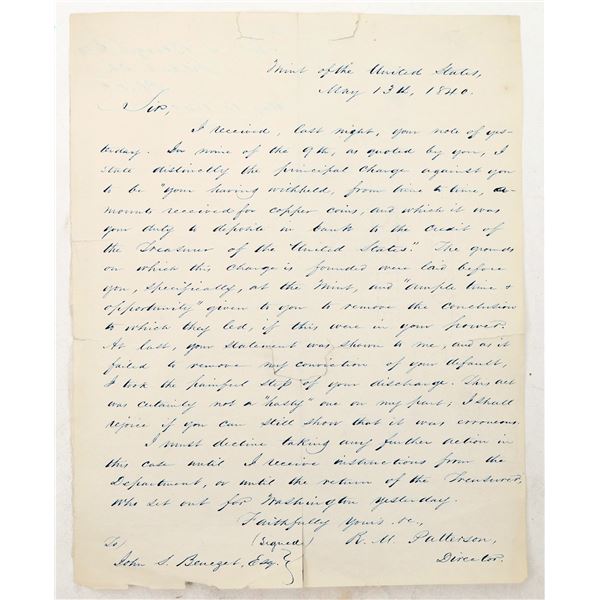 Mint of the United States,
May 13th, 1840.
Sir,
I received, last night, your note of yes-
terday. In mine of the 9th, as quoted by you, I
state distinctly the principal charge against you
to be "your having withheld, from time to time, a-
mounts received for copper coins, and which it was
your duty to deposite in bank to the credit of
the Treasurer of the United States." The grounds
on which this charge is founded were laid before
you, specifically, at the Mint, and "ample time &
opportunity" given to you to remove the conclusion
to which they led, if this were in your power.
At last, your statement was shown to me, and as it
failed to remove my conviction of your default,
I took the painful step of your discharge. This act
was certainly not a "hasty" one on my part; I shall
rejoice if you can still show that it was erroneous.
I must decline taking any further action in
this case until I receive instructions from the
Department, or until the return of the Treasurer,
who set out for Washington yesterday.
Faithfully yours &c.,
(signed) R. M. Patterson,
To
John S. Benezet, Esq. Director.